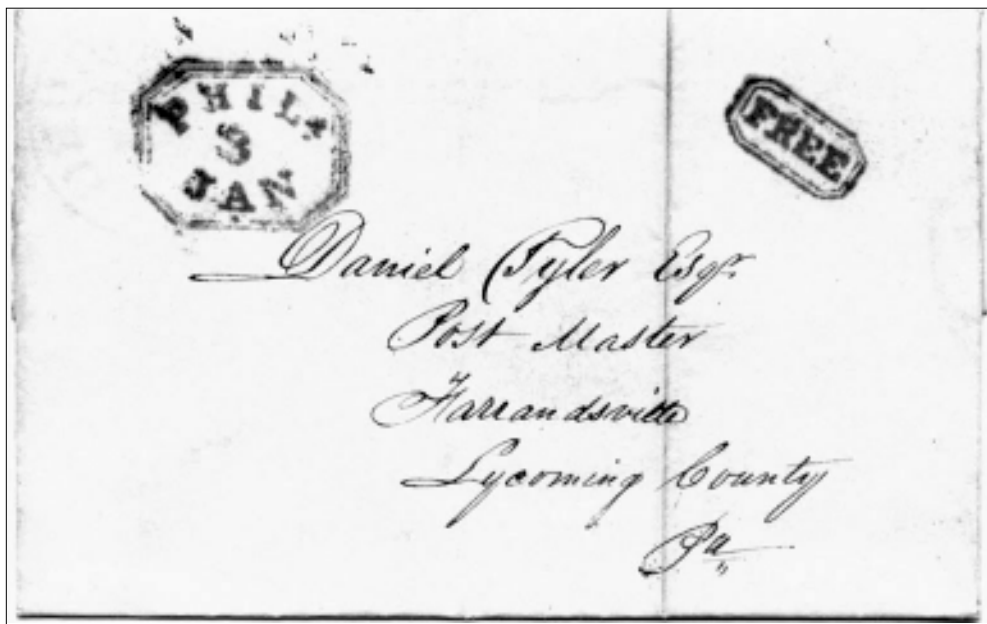 PHILA
8
JAN
FREE
Daniel Tyler Esqr.
Post Master
Farrandsville
Lycoming County
Pa